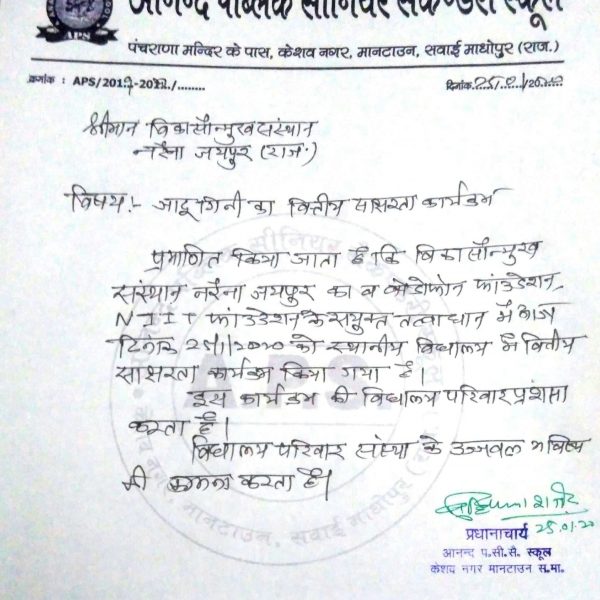 आनन्द पब्लिक सीनियर सैकण्डरी स्कूल
पंचराणा मन्दिर के पास, केशव नगर, मानटाउन, सवाई माधोपुर (राज.)
APS
क्रमांक : APS/2019-2020/........
दिनांक 25/01/2020
श्रीमान विकासोन्मुख संस्थान
नरैना जयपुर (राज.)
विषय:- जादू गिनी का वित्तीय साक्षरता कार्यक्रम
प्रमाणित किया जाता है कि विकासोन्मुख
संस्थान नरैना जयपुर का व वोडाफोन फांउडेशन,
NIIT फांउडेशन के सयुक्त तत्वाधान में आज
दिनांक 25/1/2020 को स्थानीय विद्यालय में वित्तीय
साक्षरता कार्यक्रम किया गया है।
इस कार्यक्रम की विद्यालय परिवार प्रशंसा
करता है।
विद्यालय परिवार संस्था के उज्जवल भविष्य
की कामना करता है।
25.01.20
प्रधानाचार्य
आनन्द प.सी.सै. स्कूल
केशव नगर मानटाउन स.मा.
A.P.S.